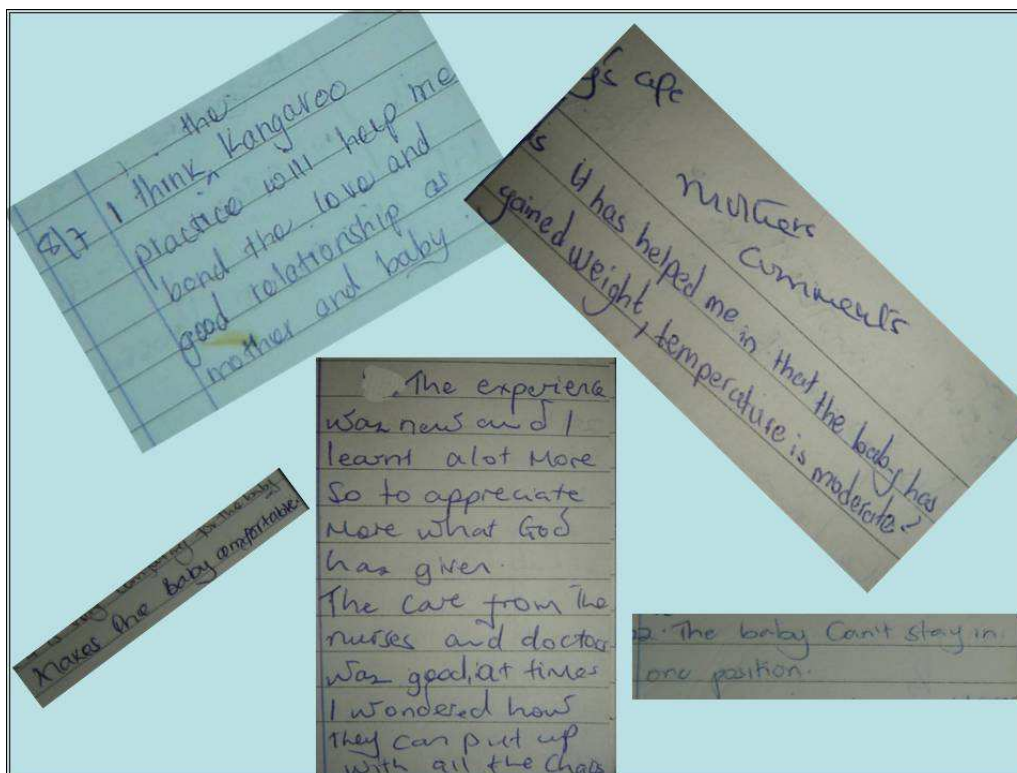 the
8/7 I think ^ Kangaroo
practice will help me
bond the love and
good relationship as
mother and baby
g's ape
Mothers
Comments
s it has helped me in that the baby has
gained weight, temperature is moderate.
The experience
was new and I
learnt alot More
So to appreciate
More what God
has given.
The care from The
nurses and doctors
was good, at times
I wondered how
They can put up
with all the Chaos
for the baby
Makes the baby comfortable.
2. The baby Can't stay in
one position.